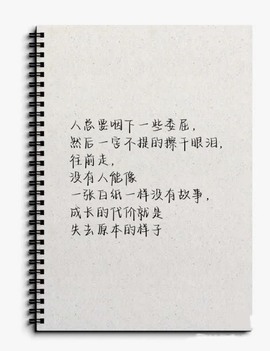 人总要咽下一些委屈，
然后一字不提的擦干眼泪，
往前走，
没有人能像
一张白纸一样没有故事，
成长的代价就是
失去原本的样子